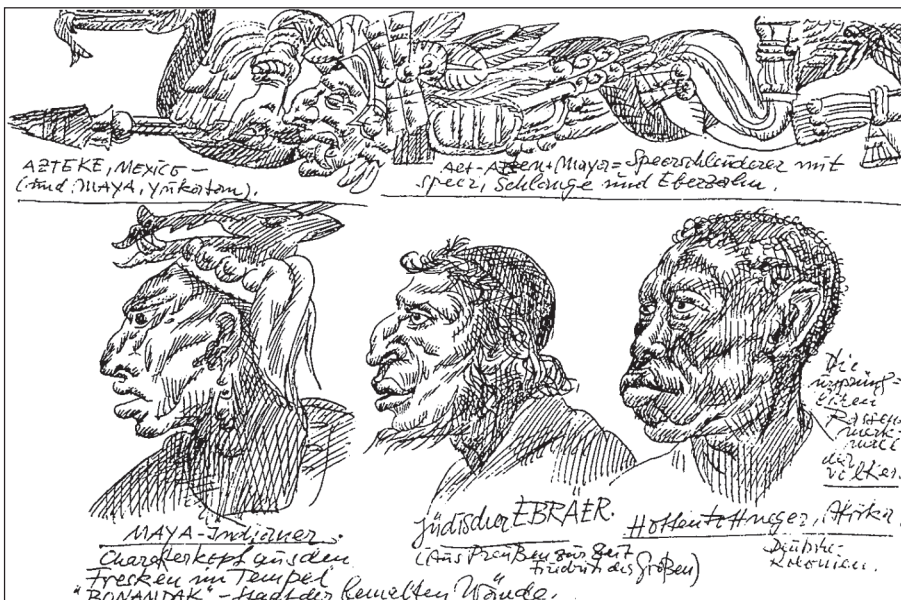 AZTEKE, MEXICO -
(und MAYA, Yukatan).
Alt-Azteke (Maya) = Speerschleuderer mit
speer, Schlange und Eberzahn.
MAYA-Indianer.
Charakterkopf aus den
Fresken im Tempel
"BONAMPAK" - Stadt der bemalten Wände.
jüdischer EBRÄER.
(Aus Preußen zur Zeit
Friedrich des Großen)
Hottentottneger, Afrika.
Deutsche-
Kolonien.
Die
ursprüng=
lichen
Rassen
merk
male
der
Völker.